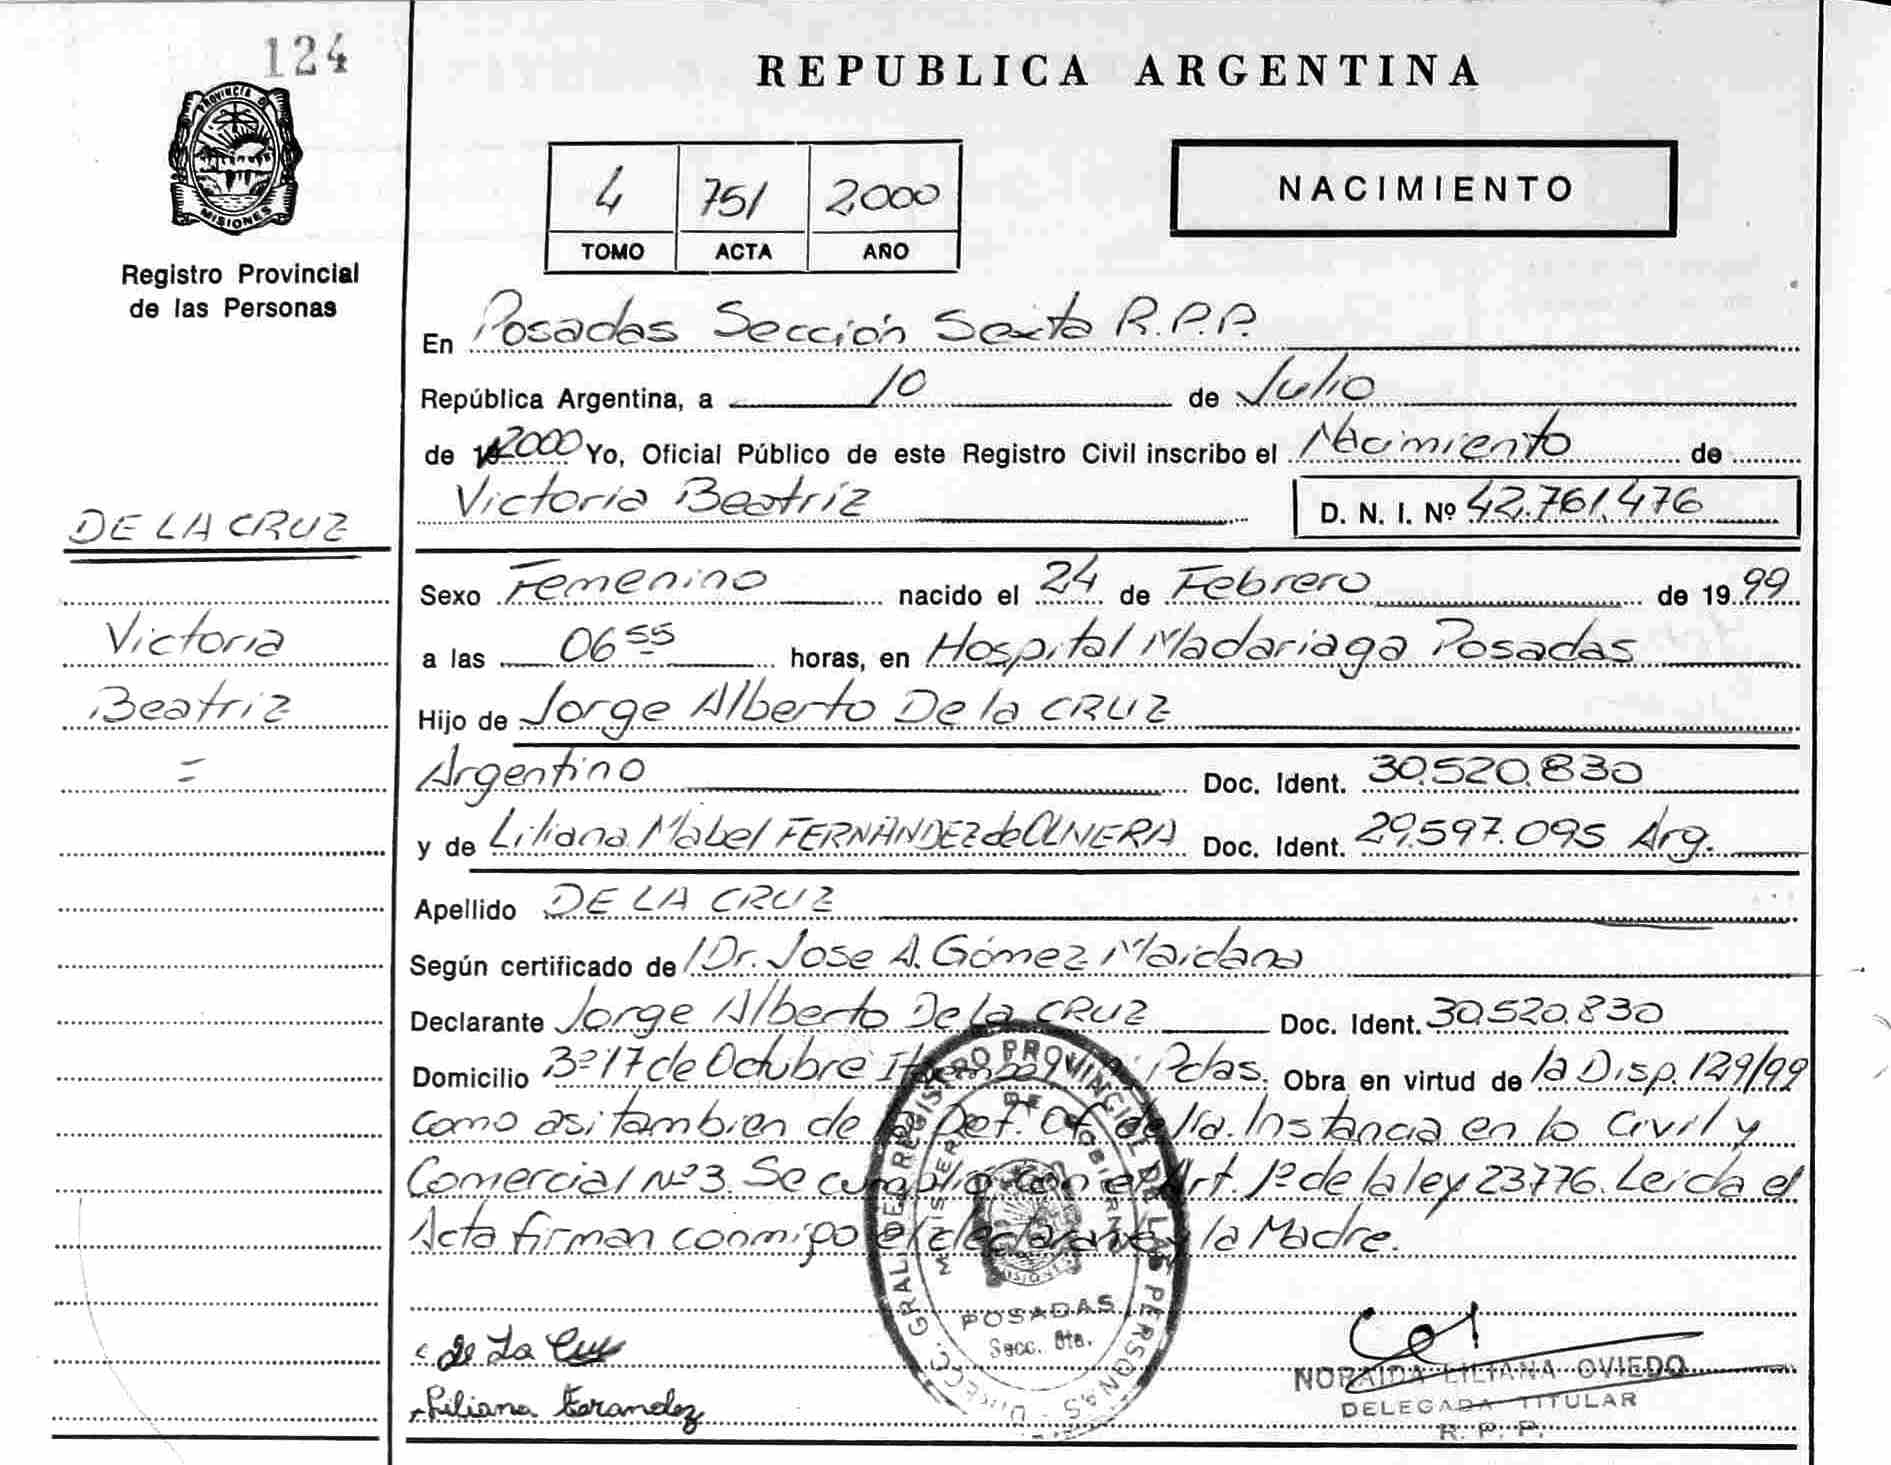 124
PROVINCIA DE
MISIONES
Registro Provincial
de las Personas
REPUBLICA ARGENTINA
4 751 2000
TOMO ACTA AÑO
NACIMIENTO
En Posadas Sección Sexta R.P.P.
República Argentina, a 10 de Julio
de 2000 Yo, Oficial Público de este Registro Civil inscribo el Nacimiento de
Victoria Beatríz D. N. I. Nº 42.761.476
DE LA CRUZ
Victoria
Beatriz
=
Sexo Femenino nacido el 24 de Febrero de 1999
a las 06 55 horas, en Hospital Madariaga Posadas
Hijo de Jorge Alberto De la CRUZ
Argentino Doc. Ident. 30.520.830
y de Liliana Mabel FERNÁNDEZ de OLIVERA Doc. Ident. 29.597.095 Arg.
Apellido DE LA CRUZ
Según certificado de Dr. Jose A. Gómez Maidana
Declarante Jorge Alberto De la CRUZ Doc. Ident. 30.520.830
Domicilio Bº 17 de Octubre Pdas. Obra en virtud de la Disp. 129/99
como asi tambien de la Def. Of. de 1ra. Instancia en lo Civil y
Comercial Nº 3. Se cumplió con el Art. 1º de la ley 23776. Leida el
Acta firman conmigo el declarante y la Madre.
DIRECC. GRAL. DEL REGISTRO PROVINCIAL DE LAS PERSONAS
MINISTERIO DE GOBIERNO
MISIONES
POSADAS
Secc. 6ta.
de La Cruz
Liliana Ferandez
NORAIDA LILIANA OVIEDO
DELEGADA TITULAR
R. P. P.